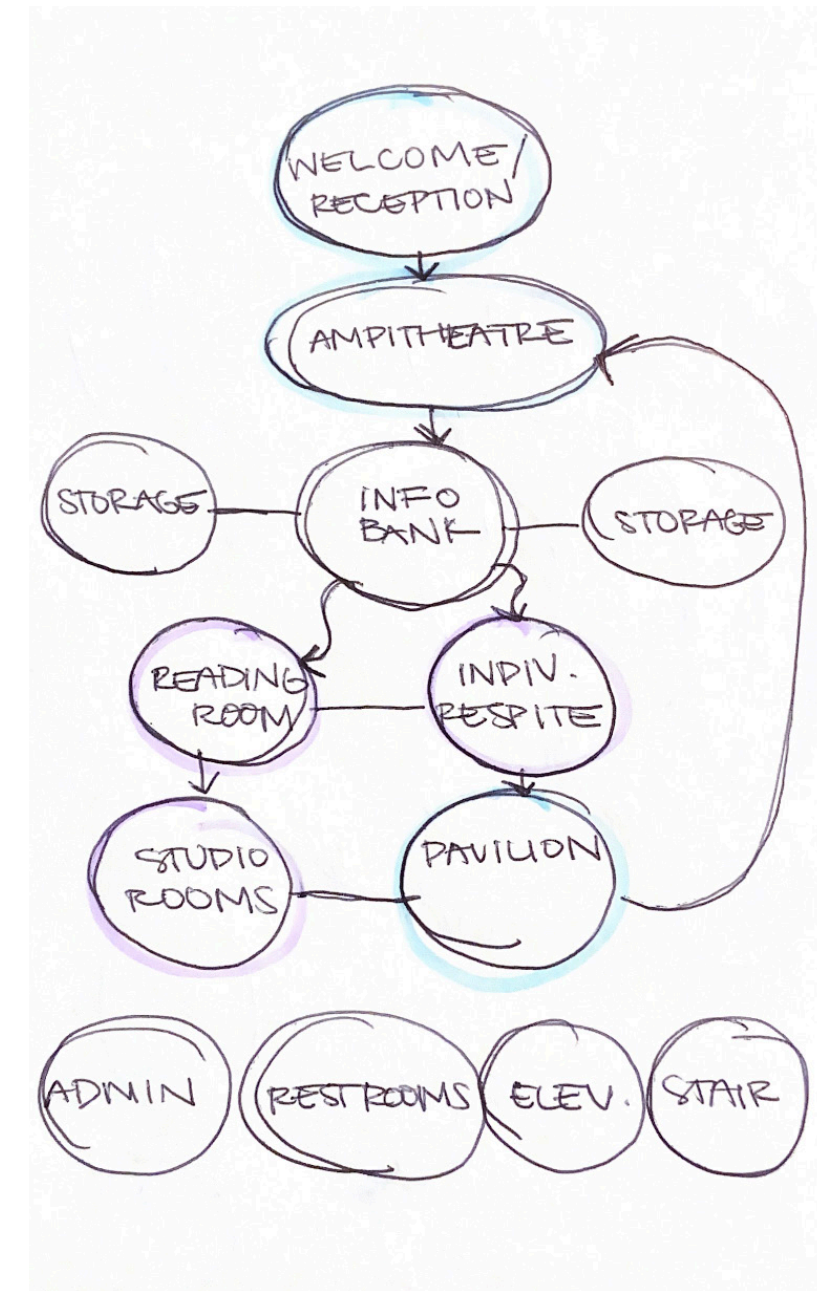 WELCOME/
RECEPTION
AMPITHEATRE
STORAGE
INFO
BANK
STORAGE
READING
ROOM
INDIV.
RESPITE
STUDIO
ROOMS
PAVILION
ADMIN
RESTROOMS
ELEV.
STAIR